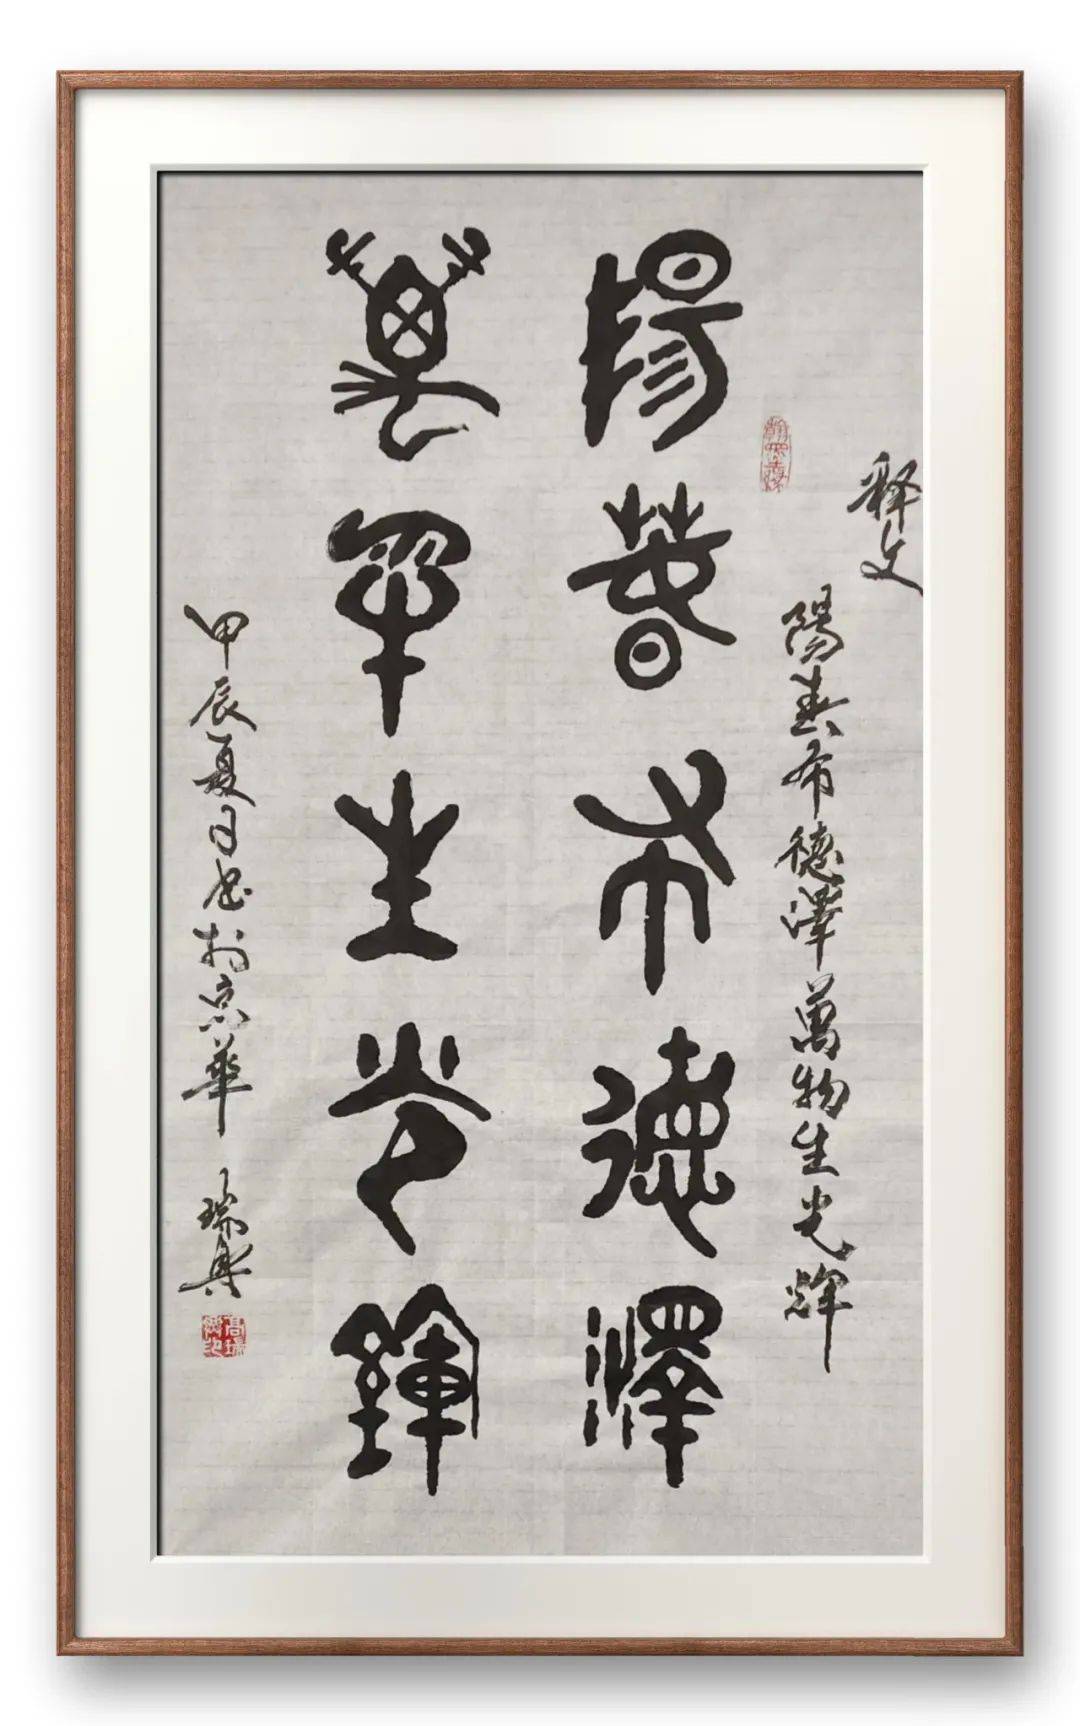 释文
陽春布德澤萬物生光輝
陽春布德澤
萬物生光輝
甲辰夏月書於京華 瑞興